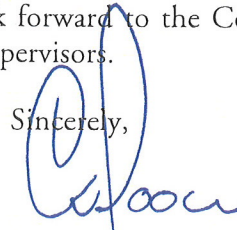 k forward to the Co
pervisors.
Sincerely,